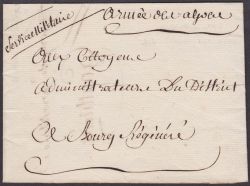 Service Militaire
Armée des alpes
Aux Citoyens
administrateurs Du District
De Bourg Régénéré